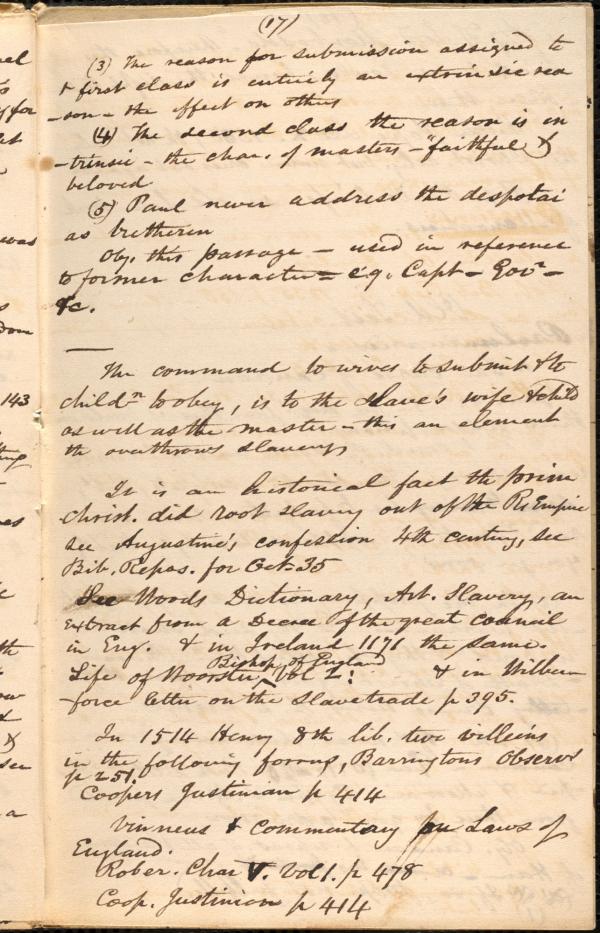 (17)
(3) The reason for submission assigned to
+ first class is entirely an extrinsic rea
-son - the effect on others
(4) The second class the reason is in
-trinsic - the char. of masters - "faithful &
beloved
(5) Paul never address the despotai
as bretheren
Obj. this passage - used in reference
to former character = e.g. Capt - Govr -
&c.
The command to wives to submit & to
childn to obey, is to the slave's wife & child
as well as the master - this an element
the overthrows slavery
It is an historical fact the prim
christ. did root slavery out of the R. Empire
see Augustine's confession 4th century, see
Bib. Repos. for Oct 35
See Woods Dictionary, Art. Slavery, an
extract from a Decree of the great council
in Eng. & in Ireland 1171 the same.
Bishop of England
Life of Woorster Vol 2: & in Wilber
-force letter on the Slave trade p 395.
In 1514 Henry 8th lib. two willeins
in the following forms, Barringtons Observs
p 251.
Coopers Justinian p 414
Vinneus & commentary Laws of
England.
Rober. Char V. Vol 1. p 478
Coop. Justinion p 414
143